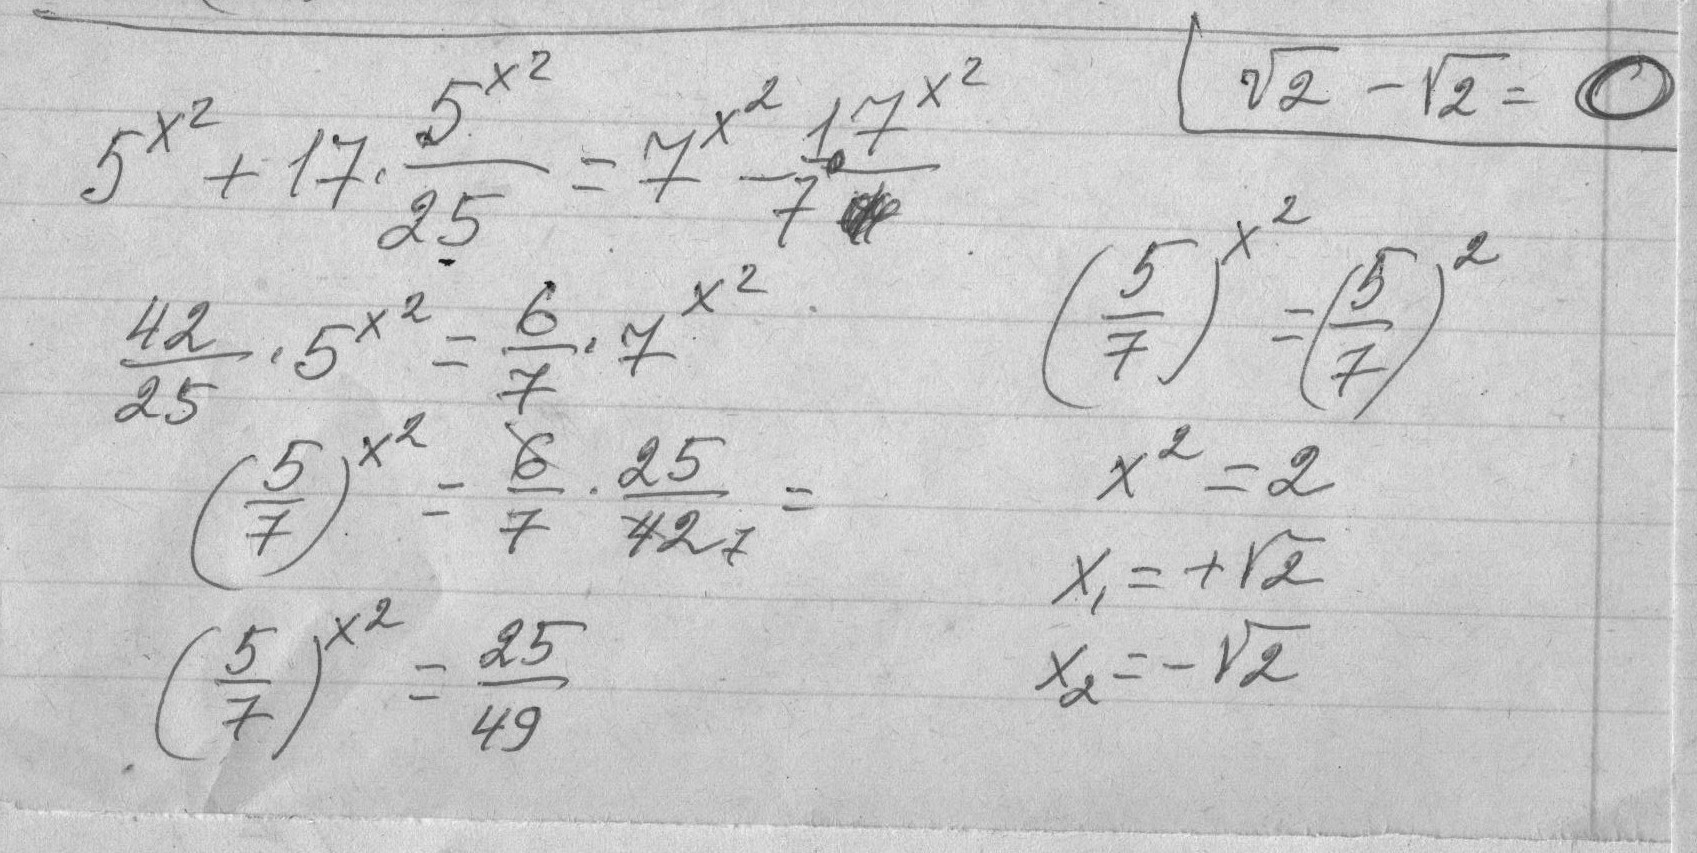 √2 - √2 = 0
5^{x^2} + 17 · \frac{5^{x^2}}{25} = 7^{x^2} - \frac{1}{7} · 7^{x^2}
\frac{42}{25} · 5^{x^2} = \frac{6}{7} · 7^{x^2}
(\frac{5}{7})^{x^2} = \frac{6}{7} · \frac{25}{42_7} =
(\frac{5}{7})^{x^2} = \frac{25}{49}
(\frac{5}{7})^{x^2} = (\frac{5}{7})^2
x^2 = 2
x_1 = +√2
x_2 = -√2